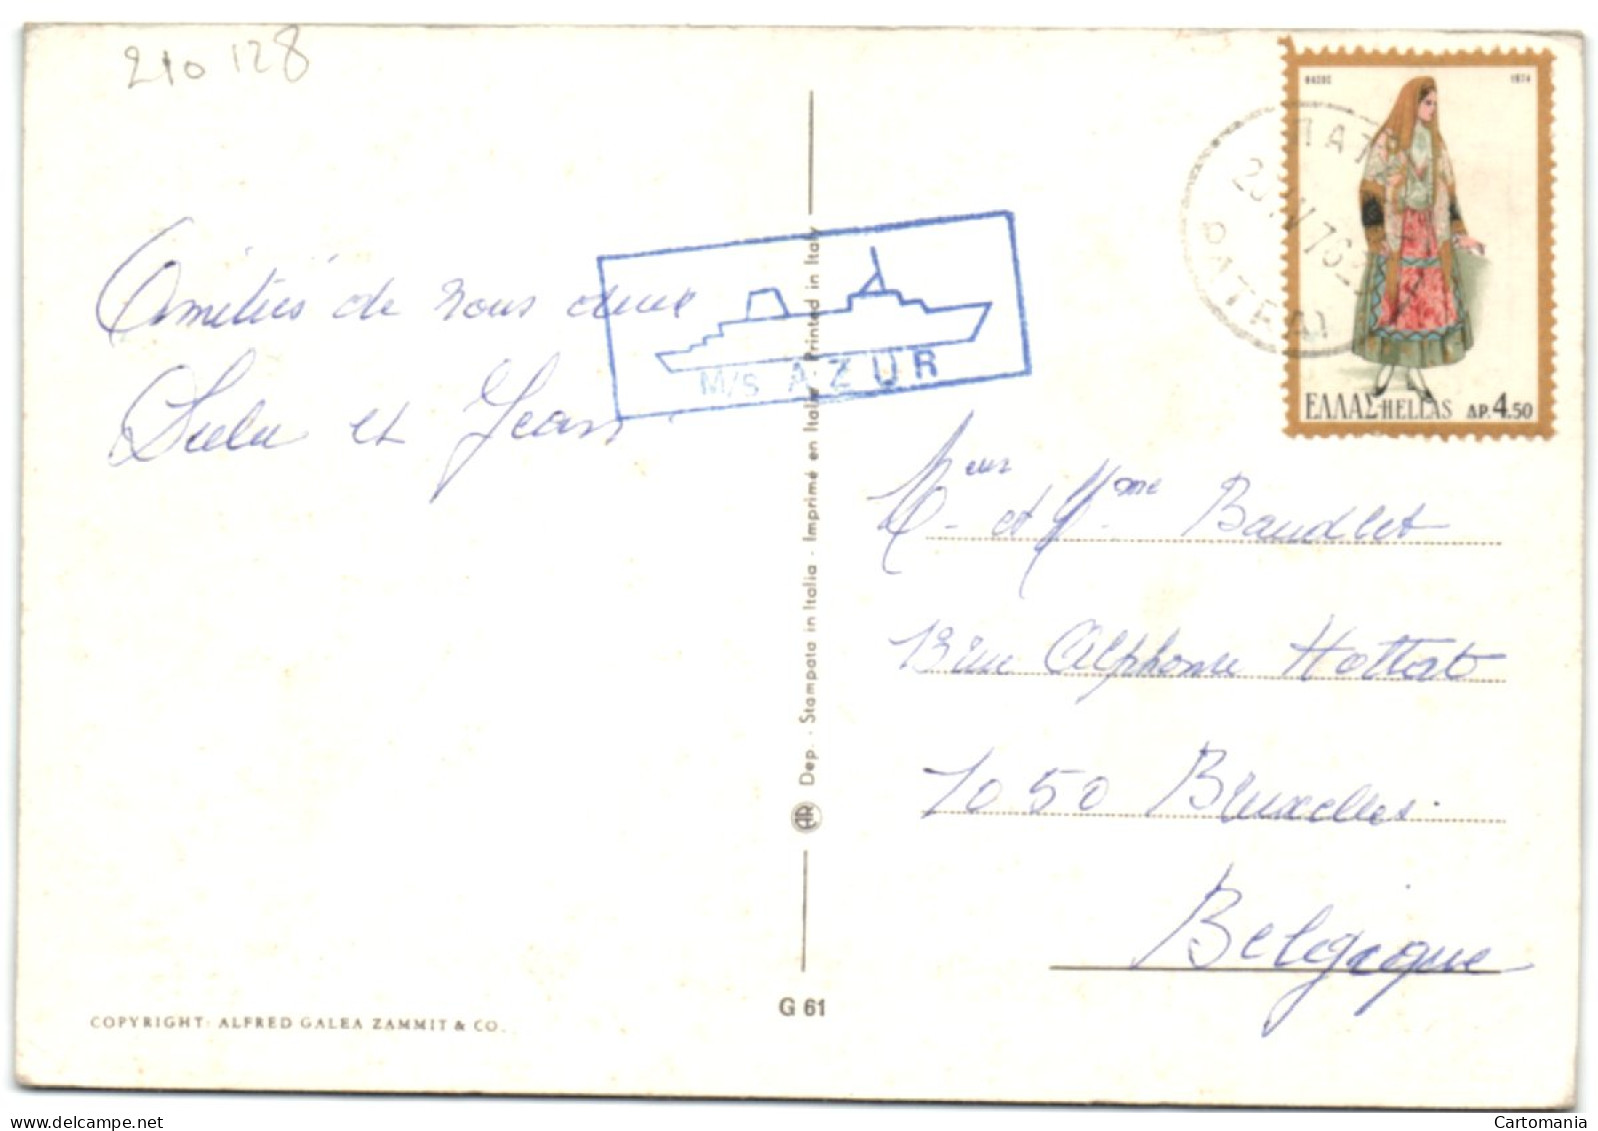 210 128
1974
ΠΑΤ
PATRAI
ΕΛΛΑΣ-HELLAS ΔΡ. 4.50
M/S AZUR
Amitiés de nous deux
Lulu et Jean
Meur et Mme Baudlet
13 rue Alphonse Hottat
1050 Bruxelles.
Belgique
Dep. - Stampata in Italia - Imprimé en Italie - Printed in Italy
G 61
COPYRIGHT: ALFRED GALEA ZAMMIT & CO.
Cartomania